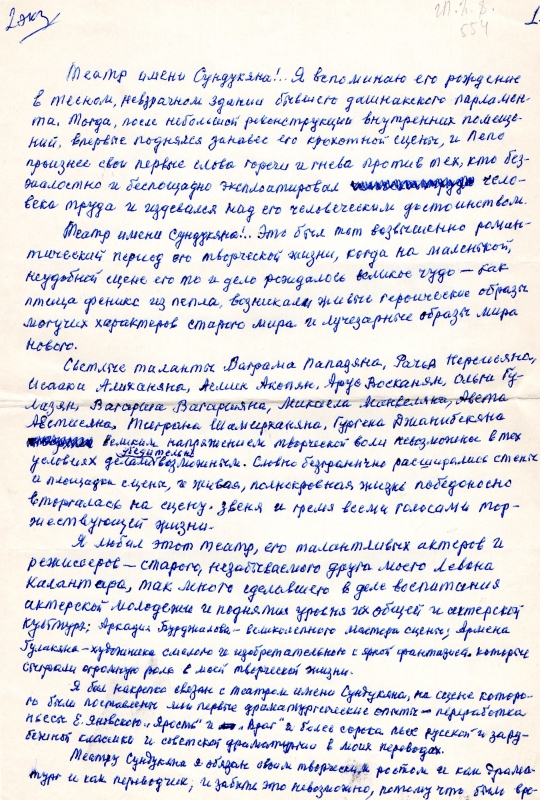 2 экз
гл. I. 8.
554
1.
Театр имени Сундукяна!.. Я вспоминаю его рождение
в тесном, невзрачном здании бывшего дашнакского парламен-
та. Тогда, после небольшой реконструкции внутренних помеще-
ний, впервые поднялся занавес его крохотной сцены, и Пепо
произнес свои первые слова горечи и гнева против тех, кто без-
жалостно и беспощадно эксплоатировал чело-
века труда и издевался над его человеческим достоинством.
Театр имени Сундукяна!.. Это был тот возвышенно роман-
тический период его творческой жизни, когда на маленькой,
неудобной сцене его то и дело рождалось великое чудо — как
птица феникс из пепла, возникали живые героические образы
могучих характеров старого мира и лучезарные образы мира
нового.
Светлые таланты Ваграма Папазяна, Рачья Нерсисяна,
Исаака Алиханяна, Асмик Акопян, Арус Восканян, Ольги Гу-
лазян, Вагарша Вагаршяна, Микаела Манвеляна, Авета
Аветисяна, Тиграна Шамирханяна, Гургена Джанибекяна
великим напряжением творческой воли невозможное в тех
условиях делали убедительно возможным. Словно безгранично расширялись стены
и площадки сцены, и живая, полнокровная жизнь победоносно
вторгалась на сцену, звеня и гремя всеми голосами тор-
жествующей жизни.
Я любил этот театр, его талантливых актеров и
режиссеров — старого, незабываемого друга моего Левона
Калантара, так много сделавшего в деле воспитания
актерской молодежи и поднятия уровня их общей и актерской
культуры; Аркадия Бурджалова — великолепного мастера сцены; Армена
Гулакяна — художника смелого и изобретательного с яркой фантазией, которые
сыграли огромную роль в моей творческой жизни.
Я был накрепко связан с театром имени Сундукяна, на сцене которо-
го были поставлены мои первые драматургические опыты — переработка
пьесы Е. Яновского „Ярость“ и „Враг“ и более сорока пьес русской и зару-
бежной классики и советской драматургии в моих переводах.
Театру Сундукяна я обязан своим творческим ростом и как драма-
тург и как переводчик; и забыть это невозможно, потому что было вре-